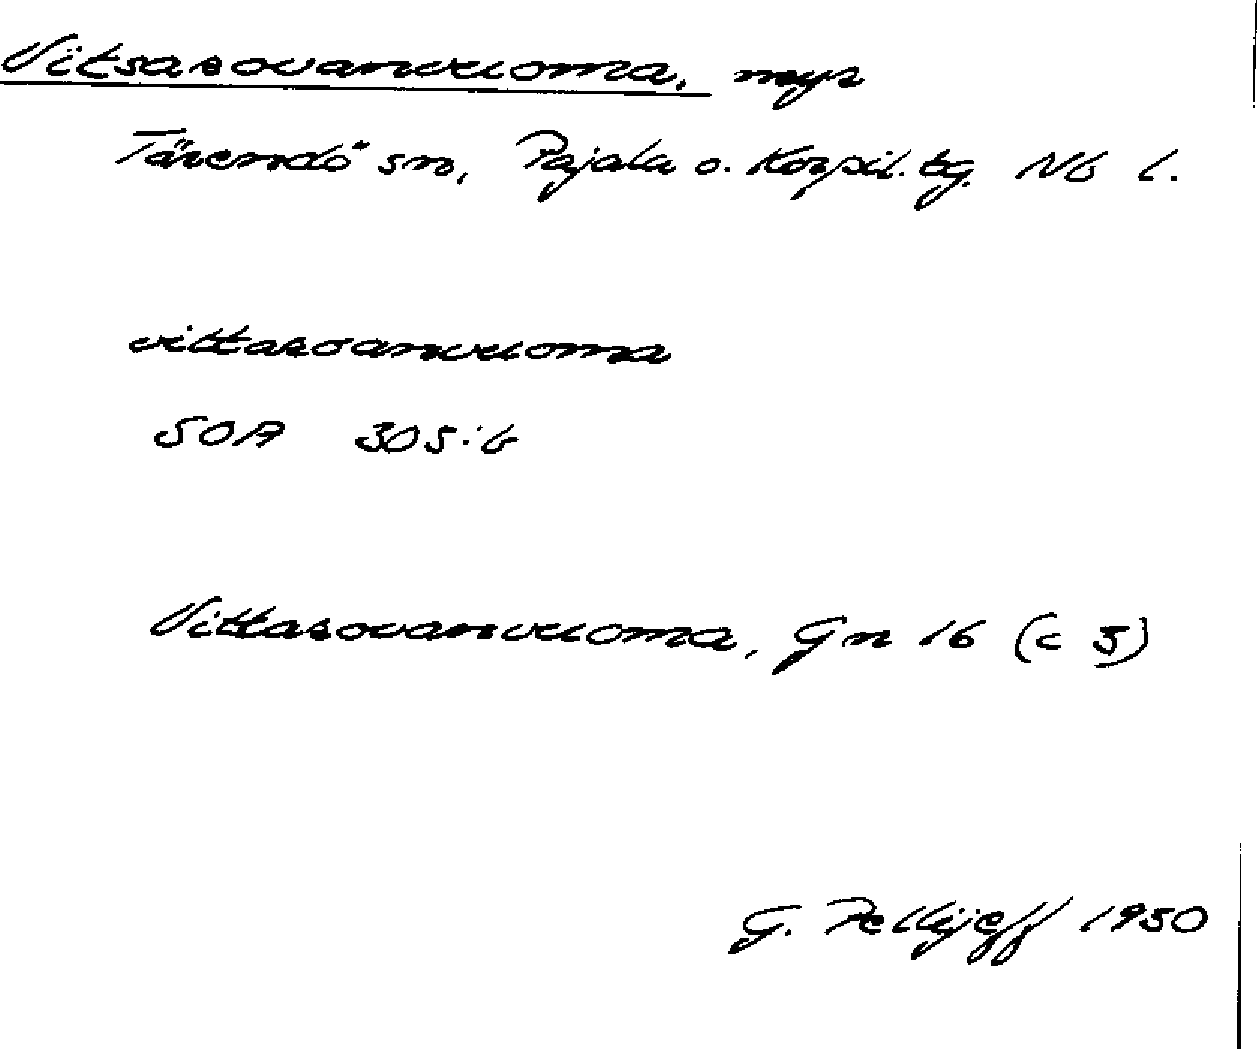 Vitsarovanvuoma, myr
Tärendö sn, Pajala o. Korpil. tg. Nb l.
vittaroanvuoma
SOA 305:6
Vittarovanvuoma, Gn 16 (c 5)
G. Pellijeff 1950